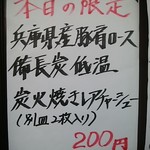 本日の限定
兵庫県産豚肩ロース
備長炭低温
炭火焼きレアチャーシュー
(別皿2枚入り)
200円